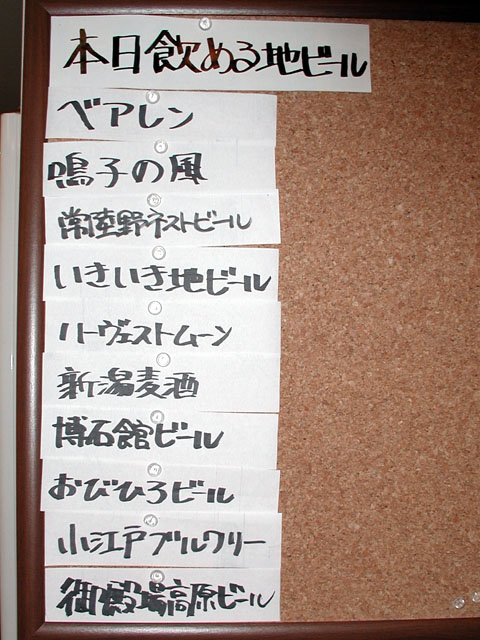 本日飲める地ビール
ベアレン
鳴子の風
常陸野ネストビール
いきいき地ビール
ハーヴェストムーン
新潟麦酒
博石館ビール
おびひろビール
小江戸ブルワリー
御殿場高原ビール